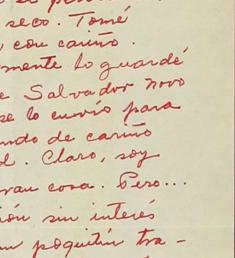 seco. Tomé
con cariño.
mente lo guardé
e Salvador Novo
se lo envío para
ndo de cariño
d. Claro, soy
ran cosa. Pero...
ión sin interés
un poquitín tra-